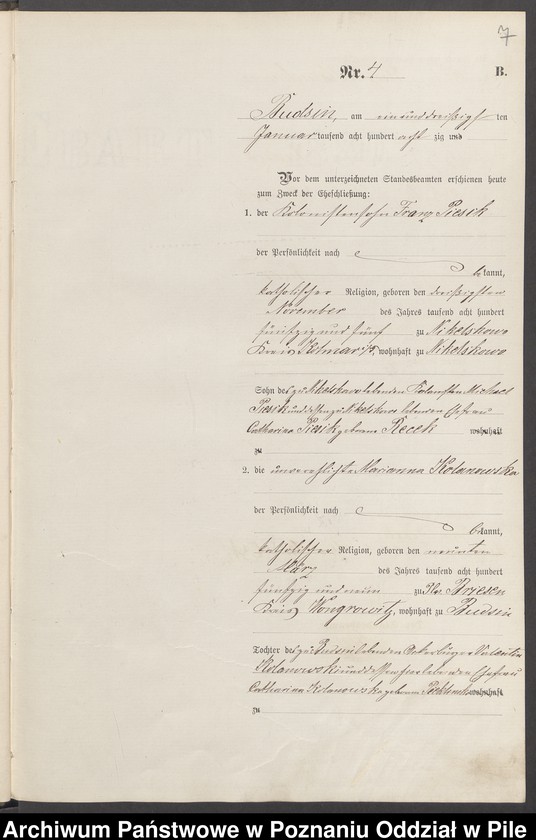 7
Nr. 4 B.
Budsin, am einunddreißigsten
Januar tausend acht hundert acht zig und
Vor dem unterzeichneten Standesbeamten erschienen heute
zum Zweck der Eheschließung:
1. der Kolonistensohn Franz Piesik
der Persönlichkeit nach
bekannt,
katholischer Religion, geboren den dreißigsten
November des Jahres tausend acht hundert
fünfzig und fünf zu Nikelskowo
Kreis Kolmar i/P, wohnhaft zu Nikelskowo
Sohn des zu Nikelskowo lebenden Kolonisten Michael
Piesik und dessen zu Nikelskowo lebenden Ehefrau
Catharina Piesik geborene Recek wohnhaft
zu
2. die unverehelichte Marianna Kolanowska
der Persönlichkeit nach
bekannt,
katholischer Religion, geboren den neunten
März des Jahres tausend acht hundert
fünfzig und neun zu Briesen
Kreis Wongrowitz, wohnhaft zu Budsin
Tochter des zu Budsin lebenden Ackerbürger Valentin
Kolanowski und dessen lebenden Ehefrau
Catharina Kolanowska geborene wohnhaft
zu
Archiwum Państwowe w Poznaniu Oddział w Pile